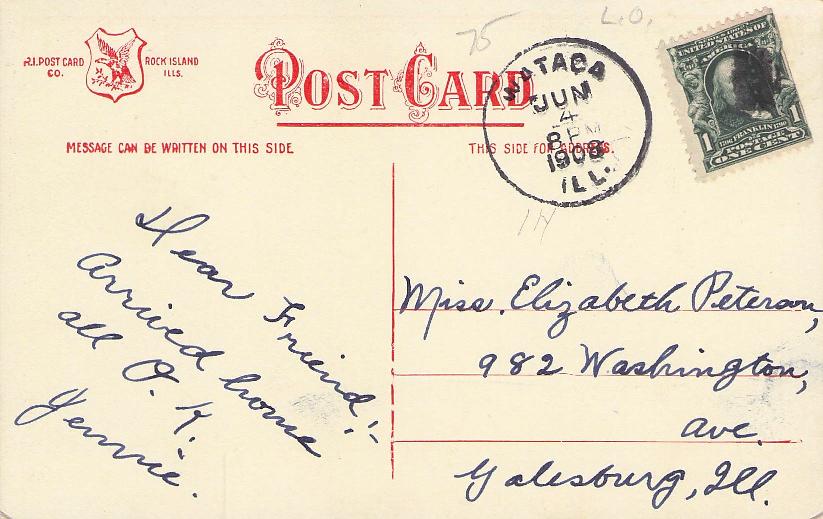 75
L.O.
R.I. POST CARD CO.
ROCK ISLAND ILLS.
POST CARD
WATAGA
JUN
4
8 PM
1908
ILL.
UNITED STATES OF AMERICA
1706 FRANKLIN 1790
1 ONE CENT 1
MESSAGE CAN BE WRITTEN ON THIS SIDE
THIS SIDE FOR ADDRESS.
14
Dear Friend:-
Arrived home
all O.K.
Jennie.
Miss. Elizabeth Peterson,
982 Washington,
ave.
Galesburg, Ill.